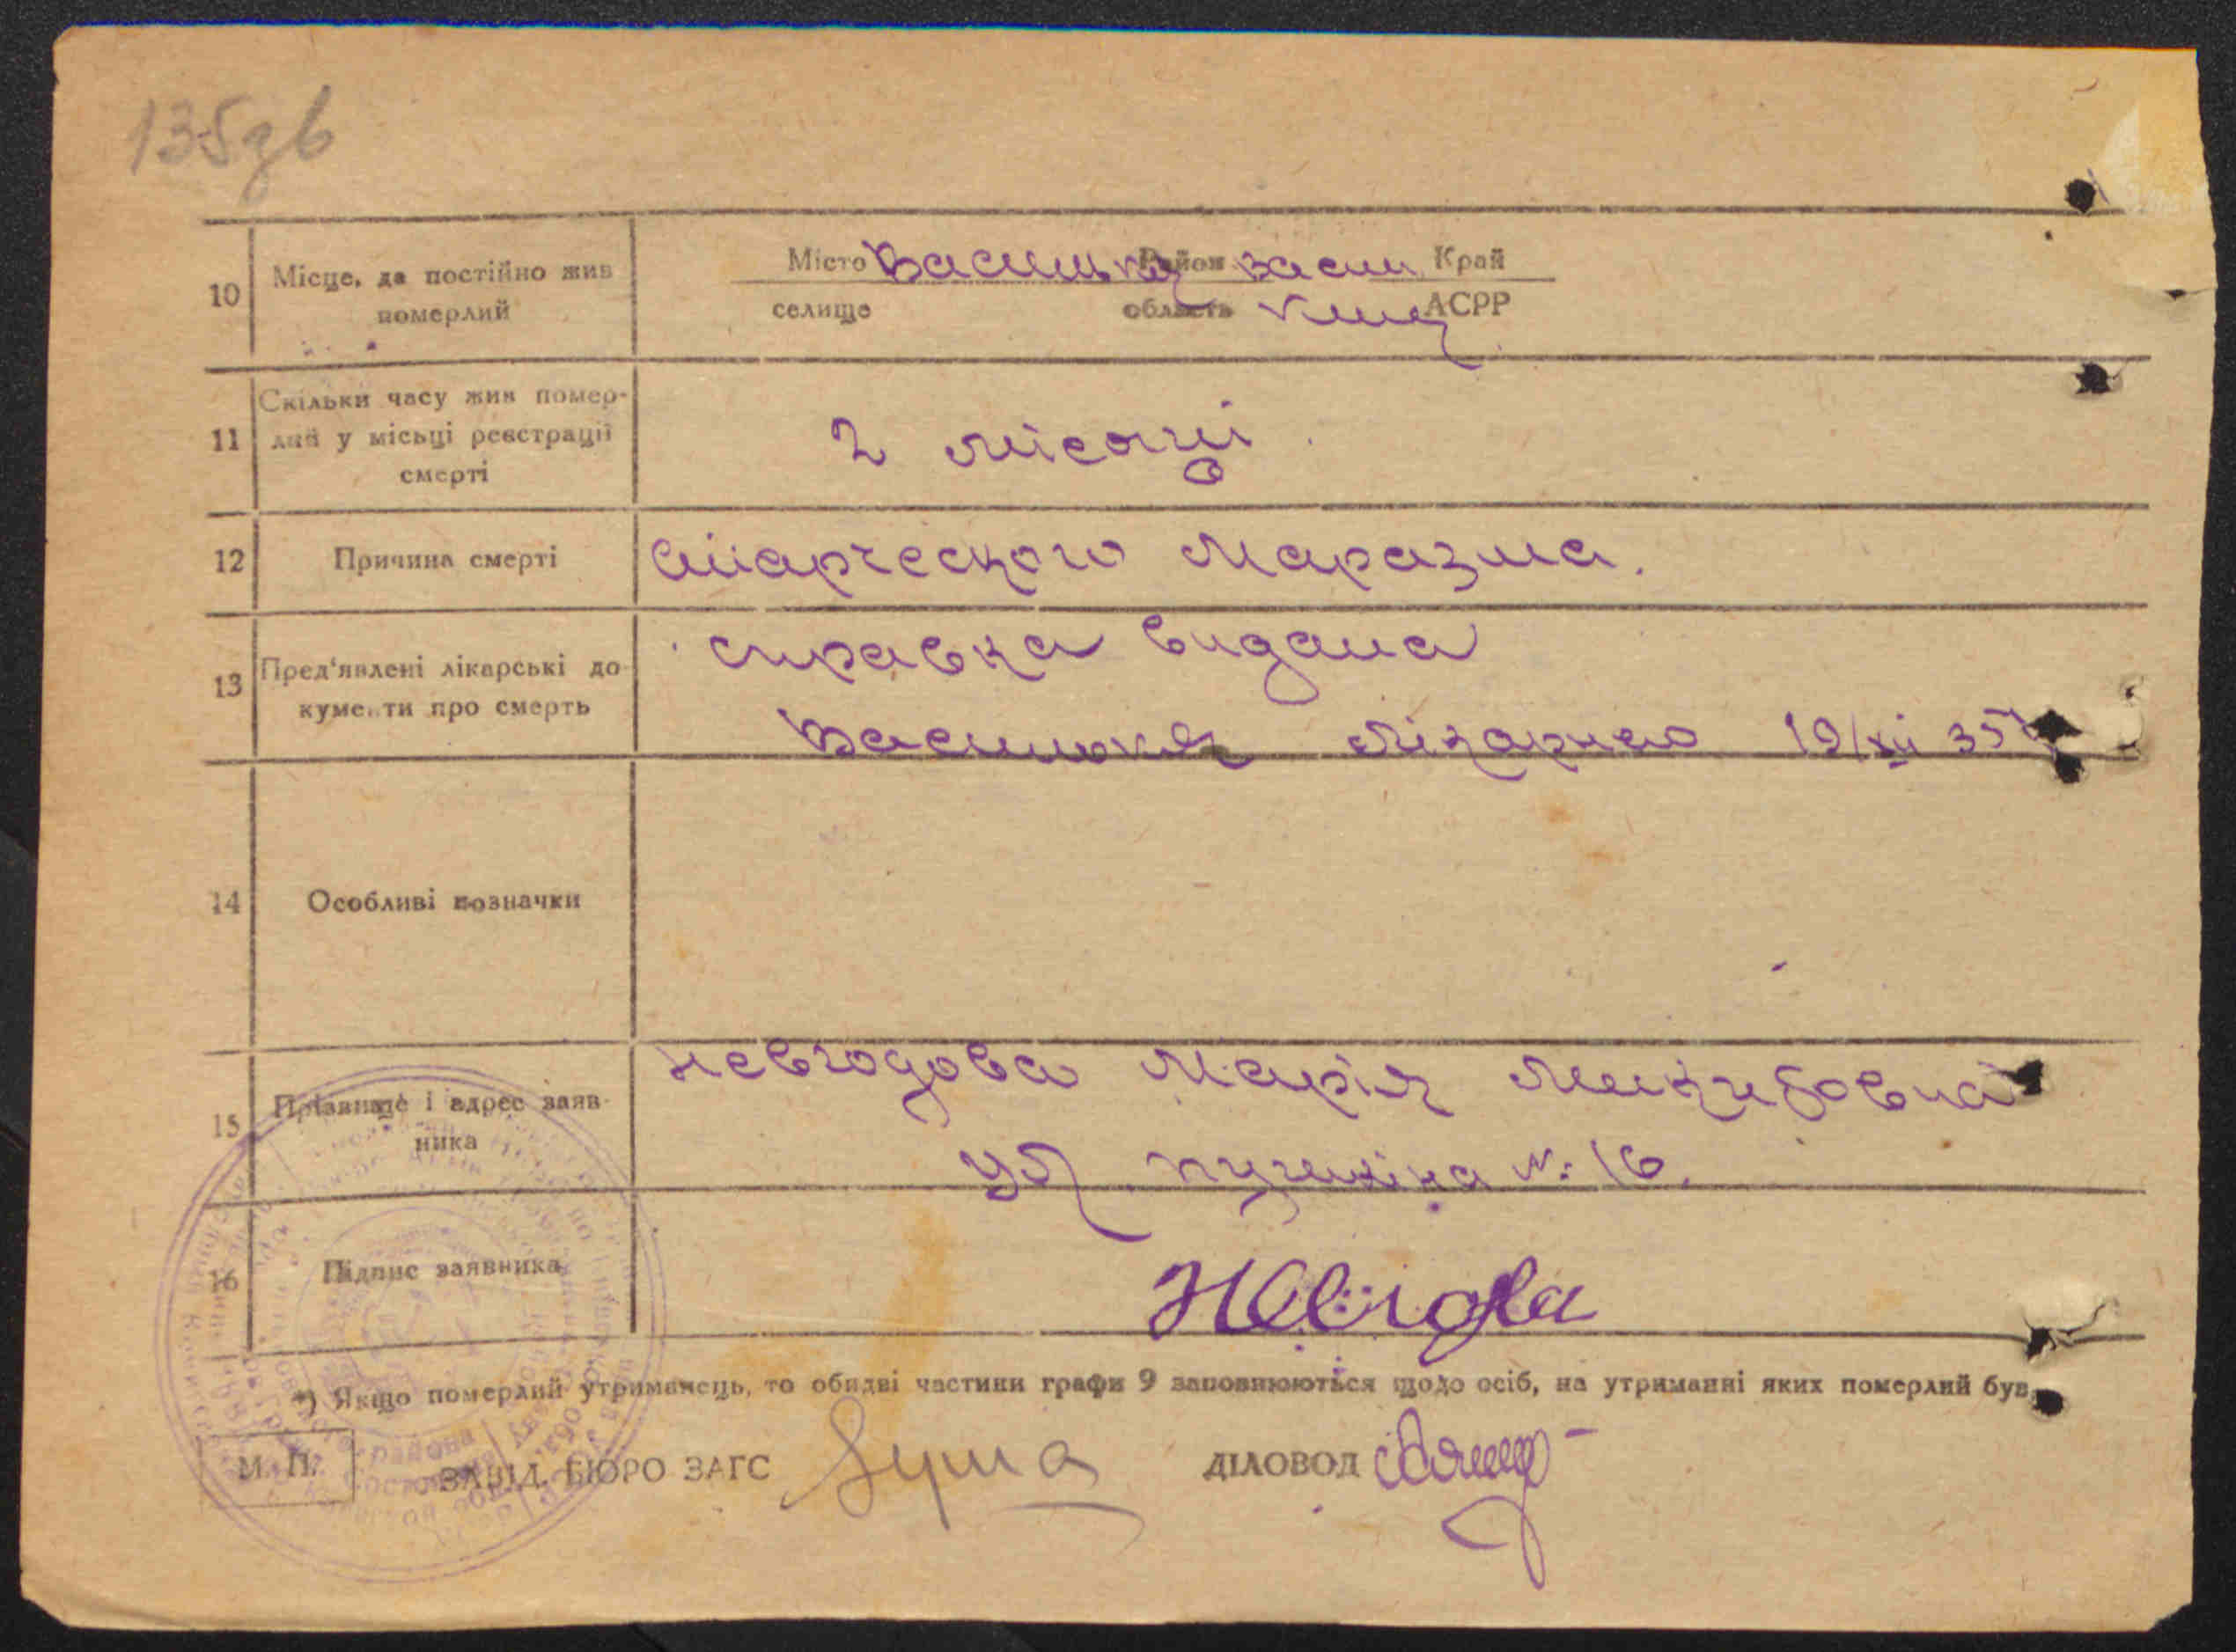 135зв
10 Місце, де постійно жив померлий
Місто Васильків Район Васил Край
селище область Київ АСРР
11 Скільки часу жив померлий у місьці реєстрації смерті
2 місяці
12 Причина смерті
старческого маразма.
13 Пред'явлені лікарські документи про смерть
справка видана
Васильков лікарнею 19/XII 35
14 Особливі позначки
15 Прізвище і адрес заявника
Невгодова Марія
ул пушкіна № 16.
16 Підпис заявника
*) Якщо померлий утриманець, то обидві частини графи 9 заповнюються щодо осіб, на утриманні яких померлий був.
М. П.
ЗАВІД. БЮРО ЗАГС
ДІЛОВОД